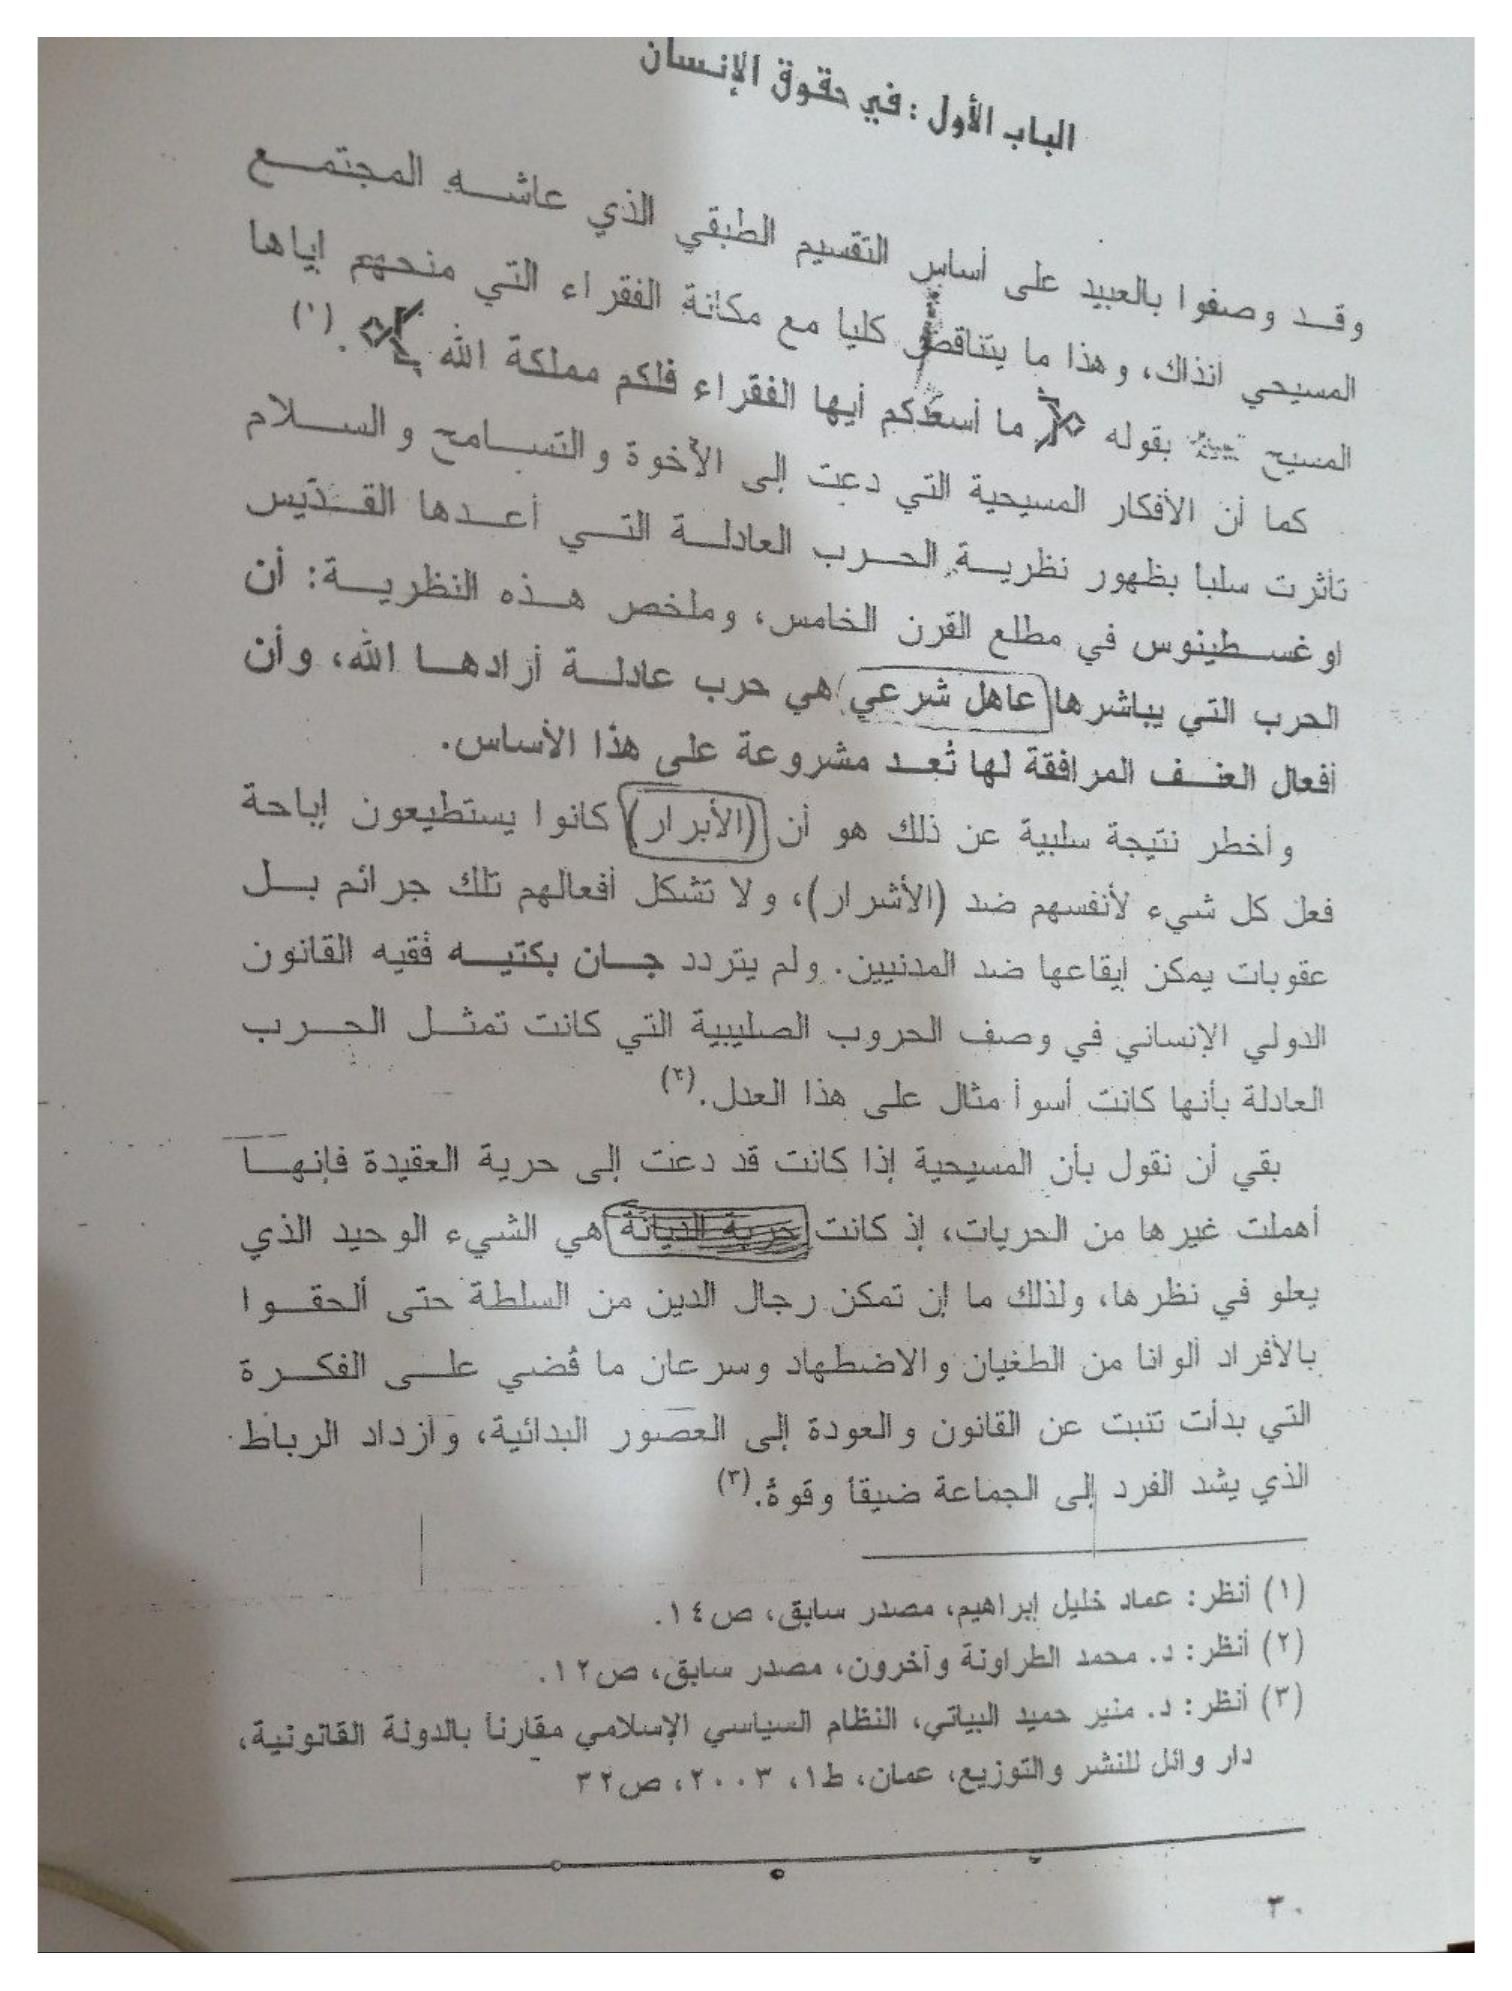 الباب الأول : في حقوق الإنسان
وقد وصفوا بالعبيد على أساس التقسيم الطبقي الذي عاشه المجتمع
المسيحي انذاك، وهذا ما يتناقض كليا مع مكانة الفقراء التي منحهم اياها
المسيح بقوله ما أسعدكم أيها الفقراء فلكم مملكة الله .(١)
كما أن الأفكار المسيحية التي دعت إلى الأخوة والتسامح والسلام
تأثرت سلبا بظهور نظرية الحرب العادلة التي أعدها القديس
اوغسطينوس في مطلع القرن الخامس، وملخص هذه النظرية: أن
الحرب التي يباشرها عاهل شرعي هي حرب عادلة أرادها الله، وأن
أفعال العنف المرافقة لها تُعد مشروعة على هذا الأساس.
وأخطر نتيجة سلبية عن ذلك هو أن (الأبرار) كانوا يستطيعون إباحة
فعل كل شيء لأنفسهم ضد (الأشرار)، ولا تشكل أفعالهم تلك جرائم بل
عقوبات يمكن إيقاعها ضد المدنيين. ولم يتردد جان بكتيه فقيه القانون
الدولي الإنساني في وصف الحروب الصليبية التي كانت تمثل الحرب
العادلة بأنها كانت أسوأ مثال على هذا العدل.(٢)
بقي أن نقول بأن المسيحية إذا كانت قد دعت إلى حرية العقيدة فإنها
أهملت غيرها من الحريات، إذ كانت حرية الديانة هي الشيء الوحيد الذي
يعلو في نظرها، ولذلك ما إن تمكن رجال الدين من السلطة حتى ألحقوا
بالأفراد ألوانا من الطغيان والاضطهاد وسرعان ما قُضي على الفكرة
التي بدأت تنبت عن القانون والعودة إلى العصور البدائية، وازداد الرباط
الذي يشد الفرد إلى الجماعة ضيقاً وقوة.(٣)
(١) أنظر: عماد خليل إبراهيم، مصدر سابق، ص١٤.
(٢) أنظر: د. محمد الطراونة وآخرون، مصدر سابق، ص١٢.
(٣) أنظر: د. منير حميد البياتي، النظام السياسي الإسلامي مقارناً بالدولة القانونية،
دار وائل للنشر والتوزيع، عمان، ط١، ٢٠٠٣، ص٣٢
٣٠